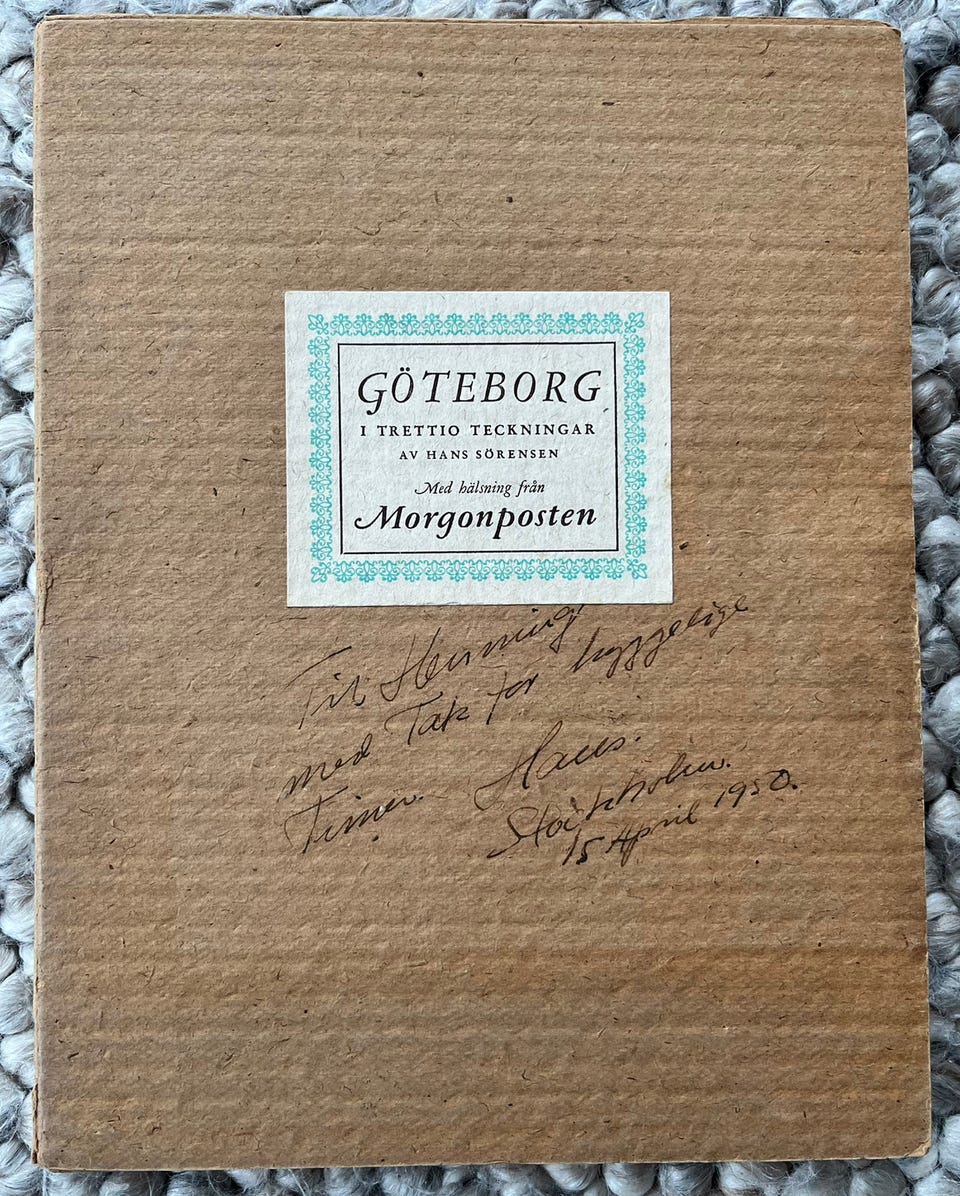 GÖTEBORG
I TRETTIO TECKNINGAR
AV HANS SÖRENSEN
Med hälsning från
Morgonposten
Til Henning
med Tak for hyggelige
Timer. Hans.
Stockholm.
15 April 1950.